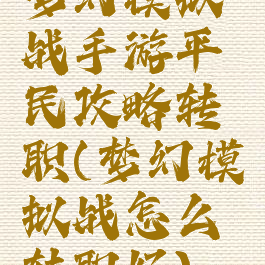 梦幻模拟
战手游平
民攻略转
职(梦幻模
拟战怎么
转职好)